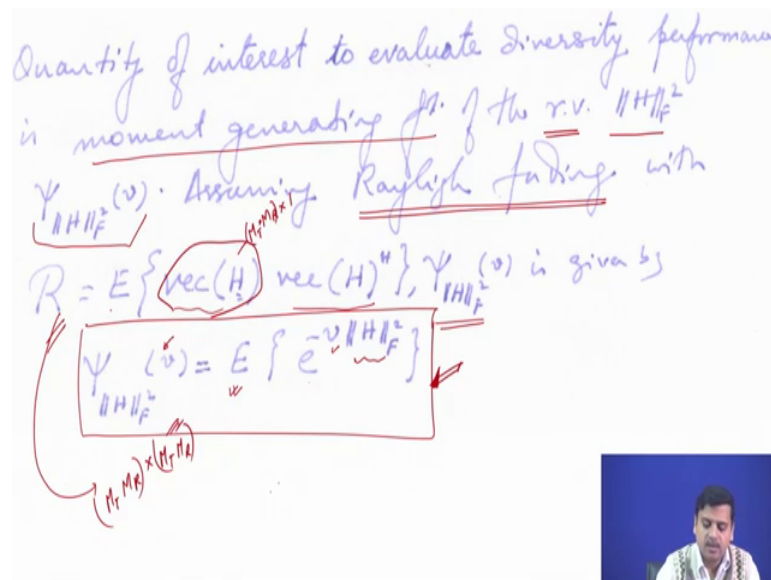 Quantity of interest to evaluate diversity performance
is moment generating fn. of the r.v. ‖H‖_F^2
Ψ_{‖H‖_F^2}(ν). Assuming Rayligh fading with
(M_T M_R)×1
R = E{vec(H) vec(H)^H}, Ψ_{‖H‖_F^2}(ν) is given by
Ψ_{‖H‖_F^2}(ν) = E{e^{-ν‖H‖_F^2}}
(M_T M_R)×(M_T M_R)